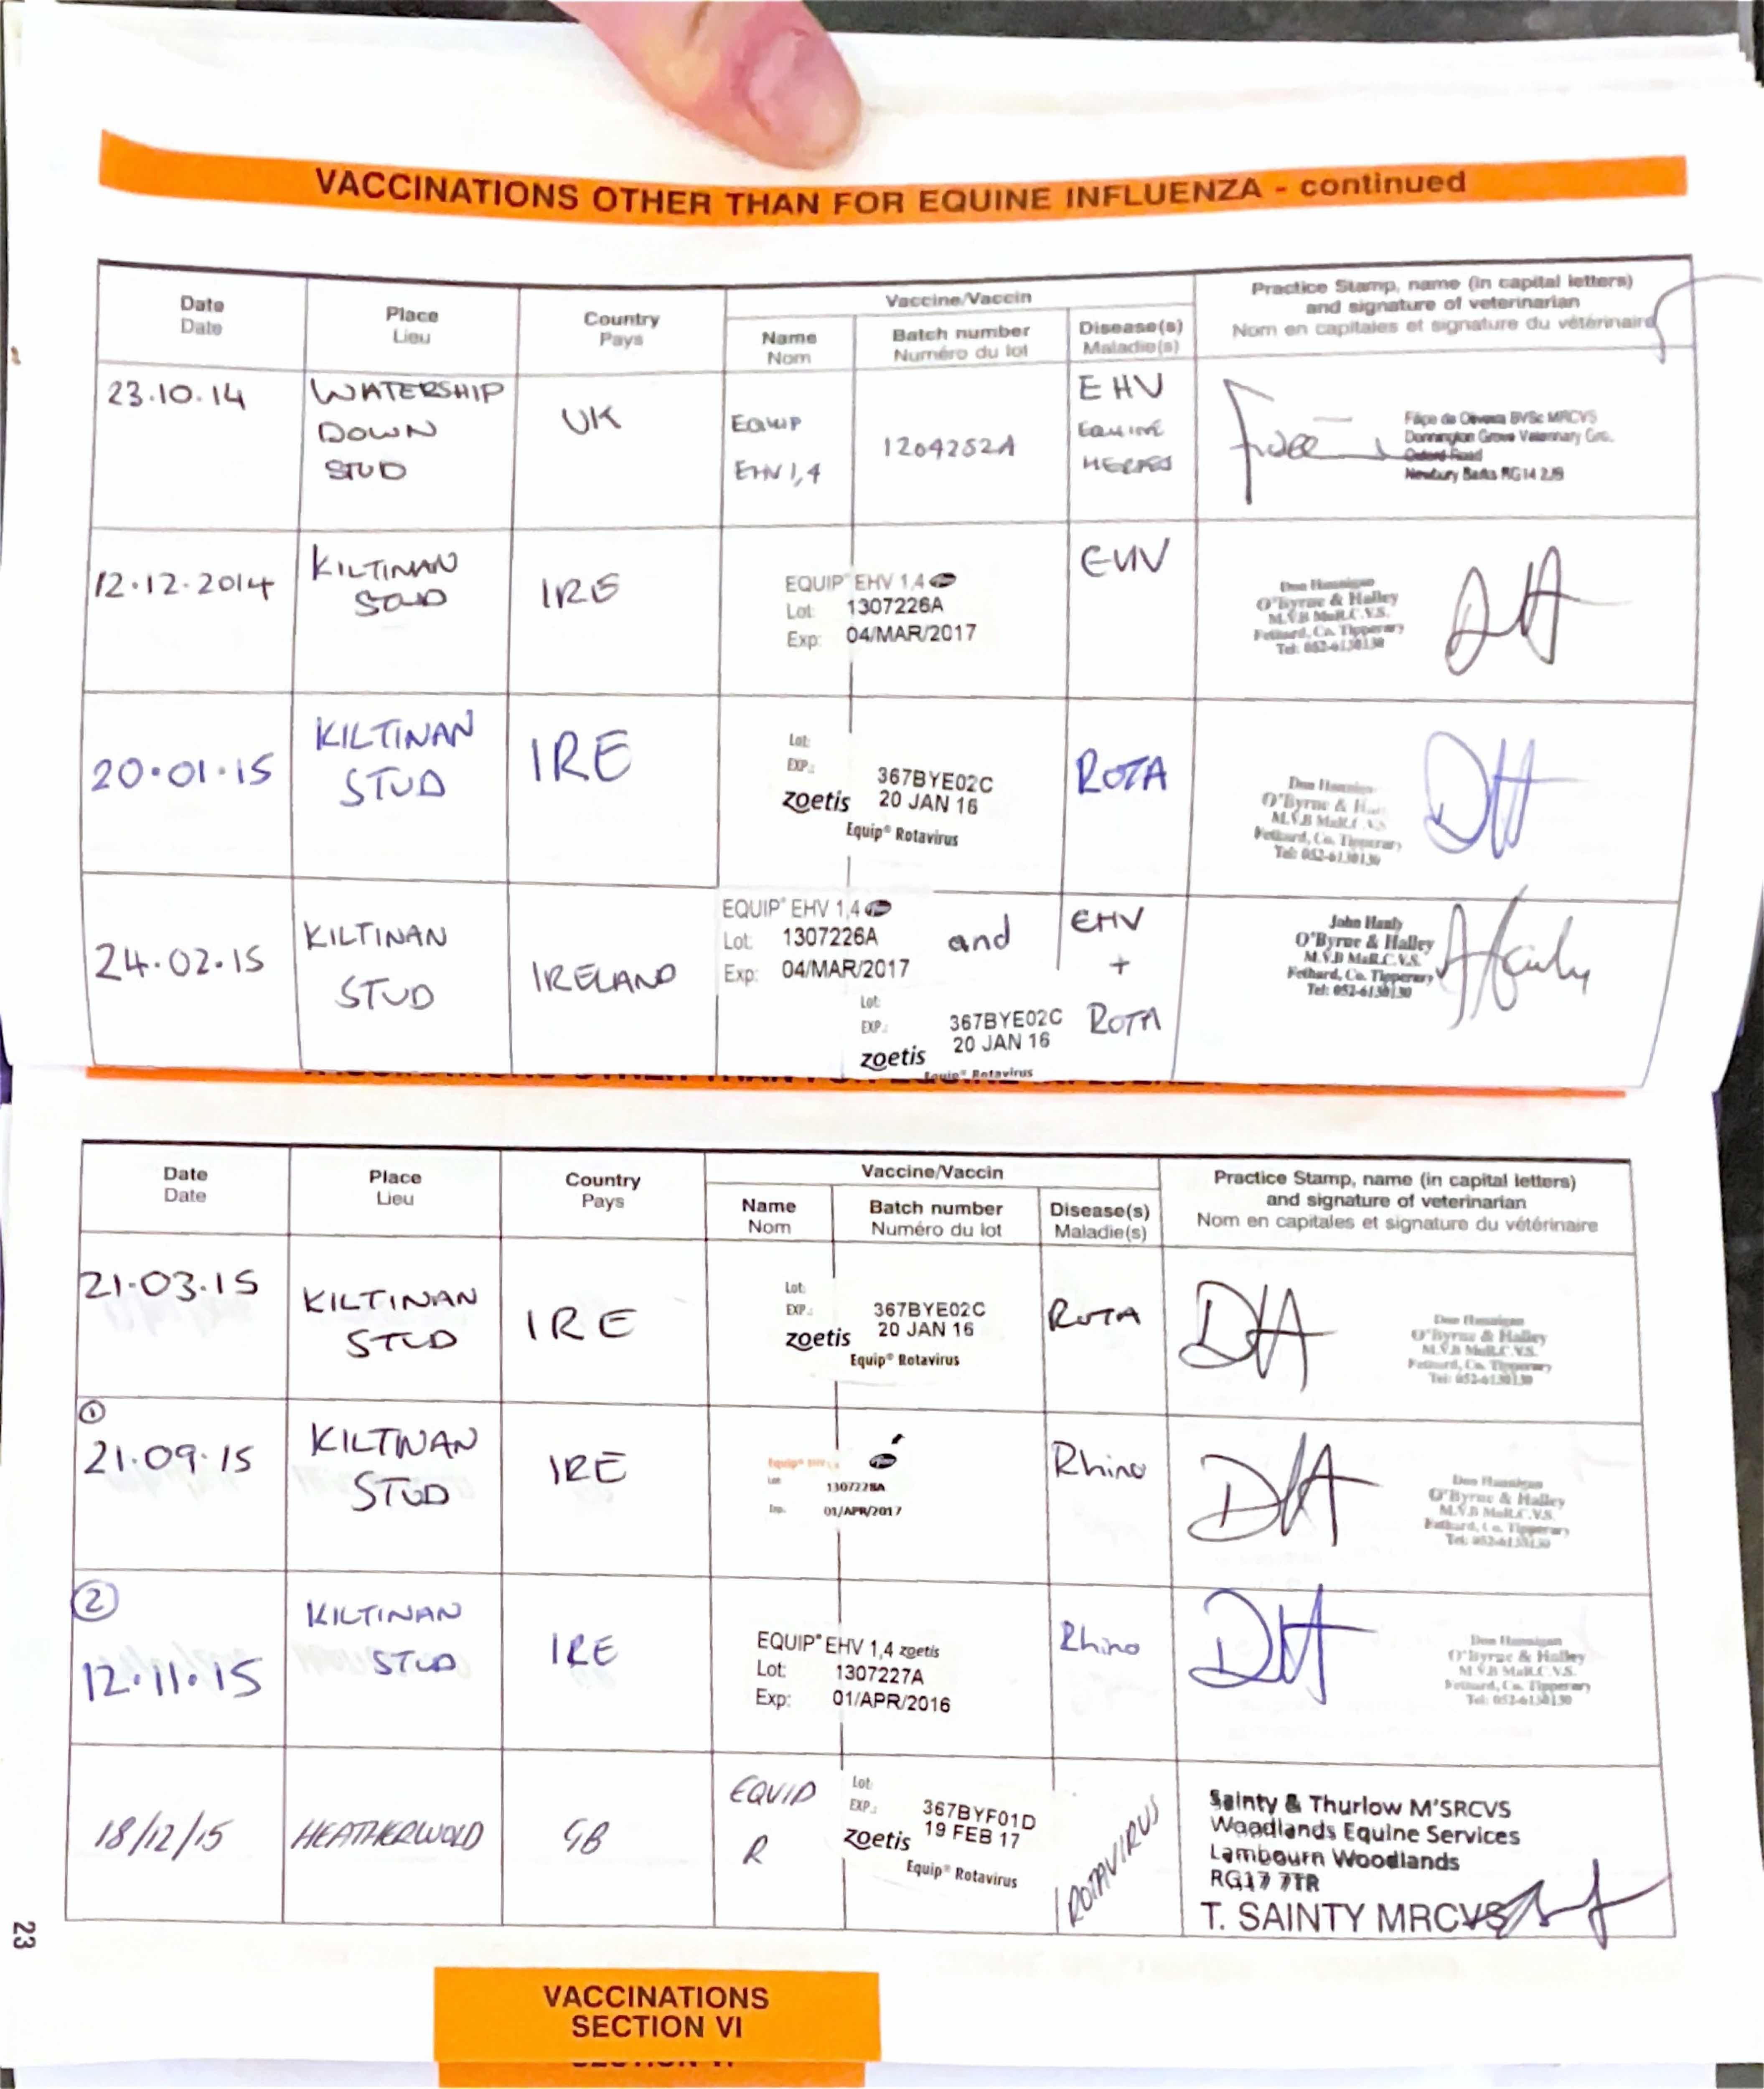 VACCINATIONS OTHER THAN FOR EQUINE INFLUENZA - continued
Date
Date
Place
Lieu
Country
Pays
Vaccine/Vaccin
Name
Nom
Batch number
Numéro du lot
Disease(s)
Maladie(s)
Practice Stamp, name (in capital letters)
and signature of veterinarian
Nom en capitales et signature du vétérinaire
23.10.14
WATERSHIP
DOWN
STUD
UK
EQUIP
EHV 1,4
1204252A
EHV
EQUINE
HERPES
Filipe de Oliveira BVSc MRCVS
Donnington Grove Veterinary Grp.
Oxford Road
Newbury Berks RG14 2JB
12.12.2014
KILTINAN
STUD
IRE
EQUIP® EHV 1,4
Lot: 1307226A
Exp: 04/MAR/2017
EHV
Don Hannigan
O'Byrne & Halley
M.V.B MuR.C.V.S.
Fethard, Co. Tipperary
Tel: 052-6130130
20.01.15
KILTINAN
STUD
IRE
Lot:
EXP.:
367BYE02C
20 JAN 16
zoetis
Equip® Rotavirus
ROTA
Don Hannigan
O'Byrne & Ha
M.V.B MuR.C.V.S
Fethard, Co. Tipperary
Tel: 052-6130130
24.02.15
KILTINAN
STUD
IRELAND
EQUIP® EHV 1,4
Lot: 1307226A
Exp: 04/MAR/2017
and
Lot:
EXP.:
367BYE02C
20 JAN 16
zoetis
Equip® Rotavirus
EHV
+
ROTA
John Hanly
O'Byrne & Halley
M.V.B MuR.C.V.S.
Fethard, Co. Tipperary
Tel: 052-6130130
Date
Date
Place
Lieu
Country
Pays
Vaccine/Vaccin
Name
Nom
Batch number
Numéro du lot
Disease(s)
Maladie(s)
Practice Stamp, name (in capital letters)
and signature of veterinarian
Nom en capitales et signature du vétérinaire
21.03.15
KILTINAN
STUD
IRE
Lot:
EXP.:
367BYE02C
20 JAN 16
zoetis
Equip® Rotavirus
ROTA
Don Hannigan
O'Byrne & Halley
M.V.B MuR.C.V.S.
Fethard, Co. Tipperary
Tel: 052-6130130
①
21.09.15
KILTINAN
STUD
IRE
Equip® EHV 1,4
Lot: 1307228A
Exp. 01/APR/2017
Rhino
Don Hannigan
O'Byrne & Halley
M.V.B MuR.C.V.S.
Fethard, Co. Tipperary
Tel: 052-6130130
②
12.11.15
KILTINAN
STUD
IRE
EQUIP® EHV 1,4 zoetis
Lot: 1307227A
Exp: 01/APR/2016
Rhino
Don Hannigan
O'Byrne & Halley
M.V.B MuR.C.V.S.
Fethard, Co. Tipperary
Tel: 052-6130130
18/12/15
HEATHERWOLD
GB
EQUIP
R
Lot:
EXP.:
367BYF01D
19 FEB 17
zoetis
Equip® Rotavirus
ROTAVIRUS
Sainty & Thurlow M'SRCVS
Woodlands Equine Services
Lambourn Woodlands
RG17 7TR
T. SAINTY MRCVS
23
VACCINATIONS
SECTION VI